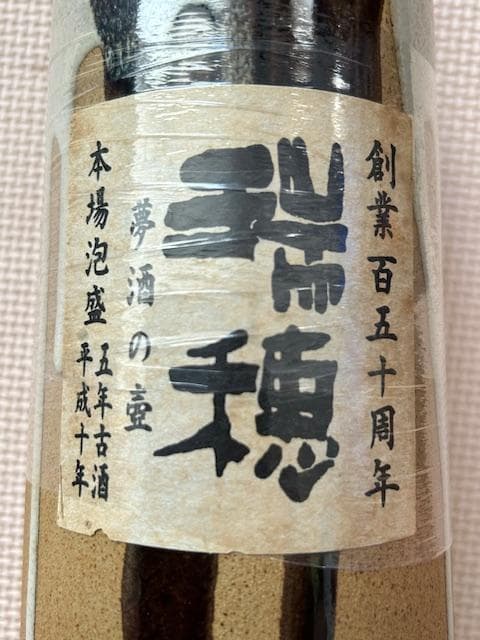 創業百五十周年
瑞穂
夢酒の壺
本場泡盛
五年古酒
平成十年